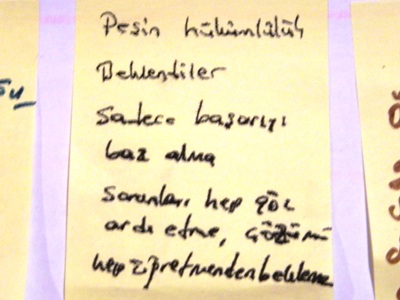 Peşin hükümlülük
Beklentiler
Sadece başarıyı
baz alma
Sorunları hep göz
ardı etme, çözümü
hep öğretmenden bekleme